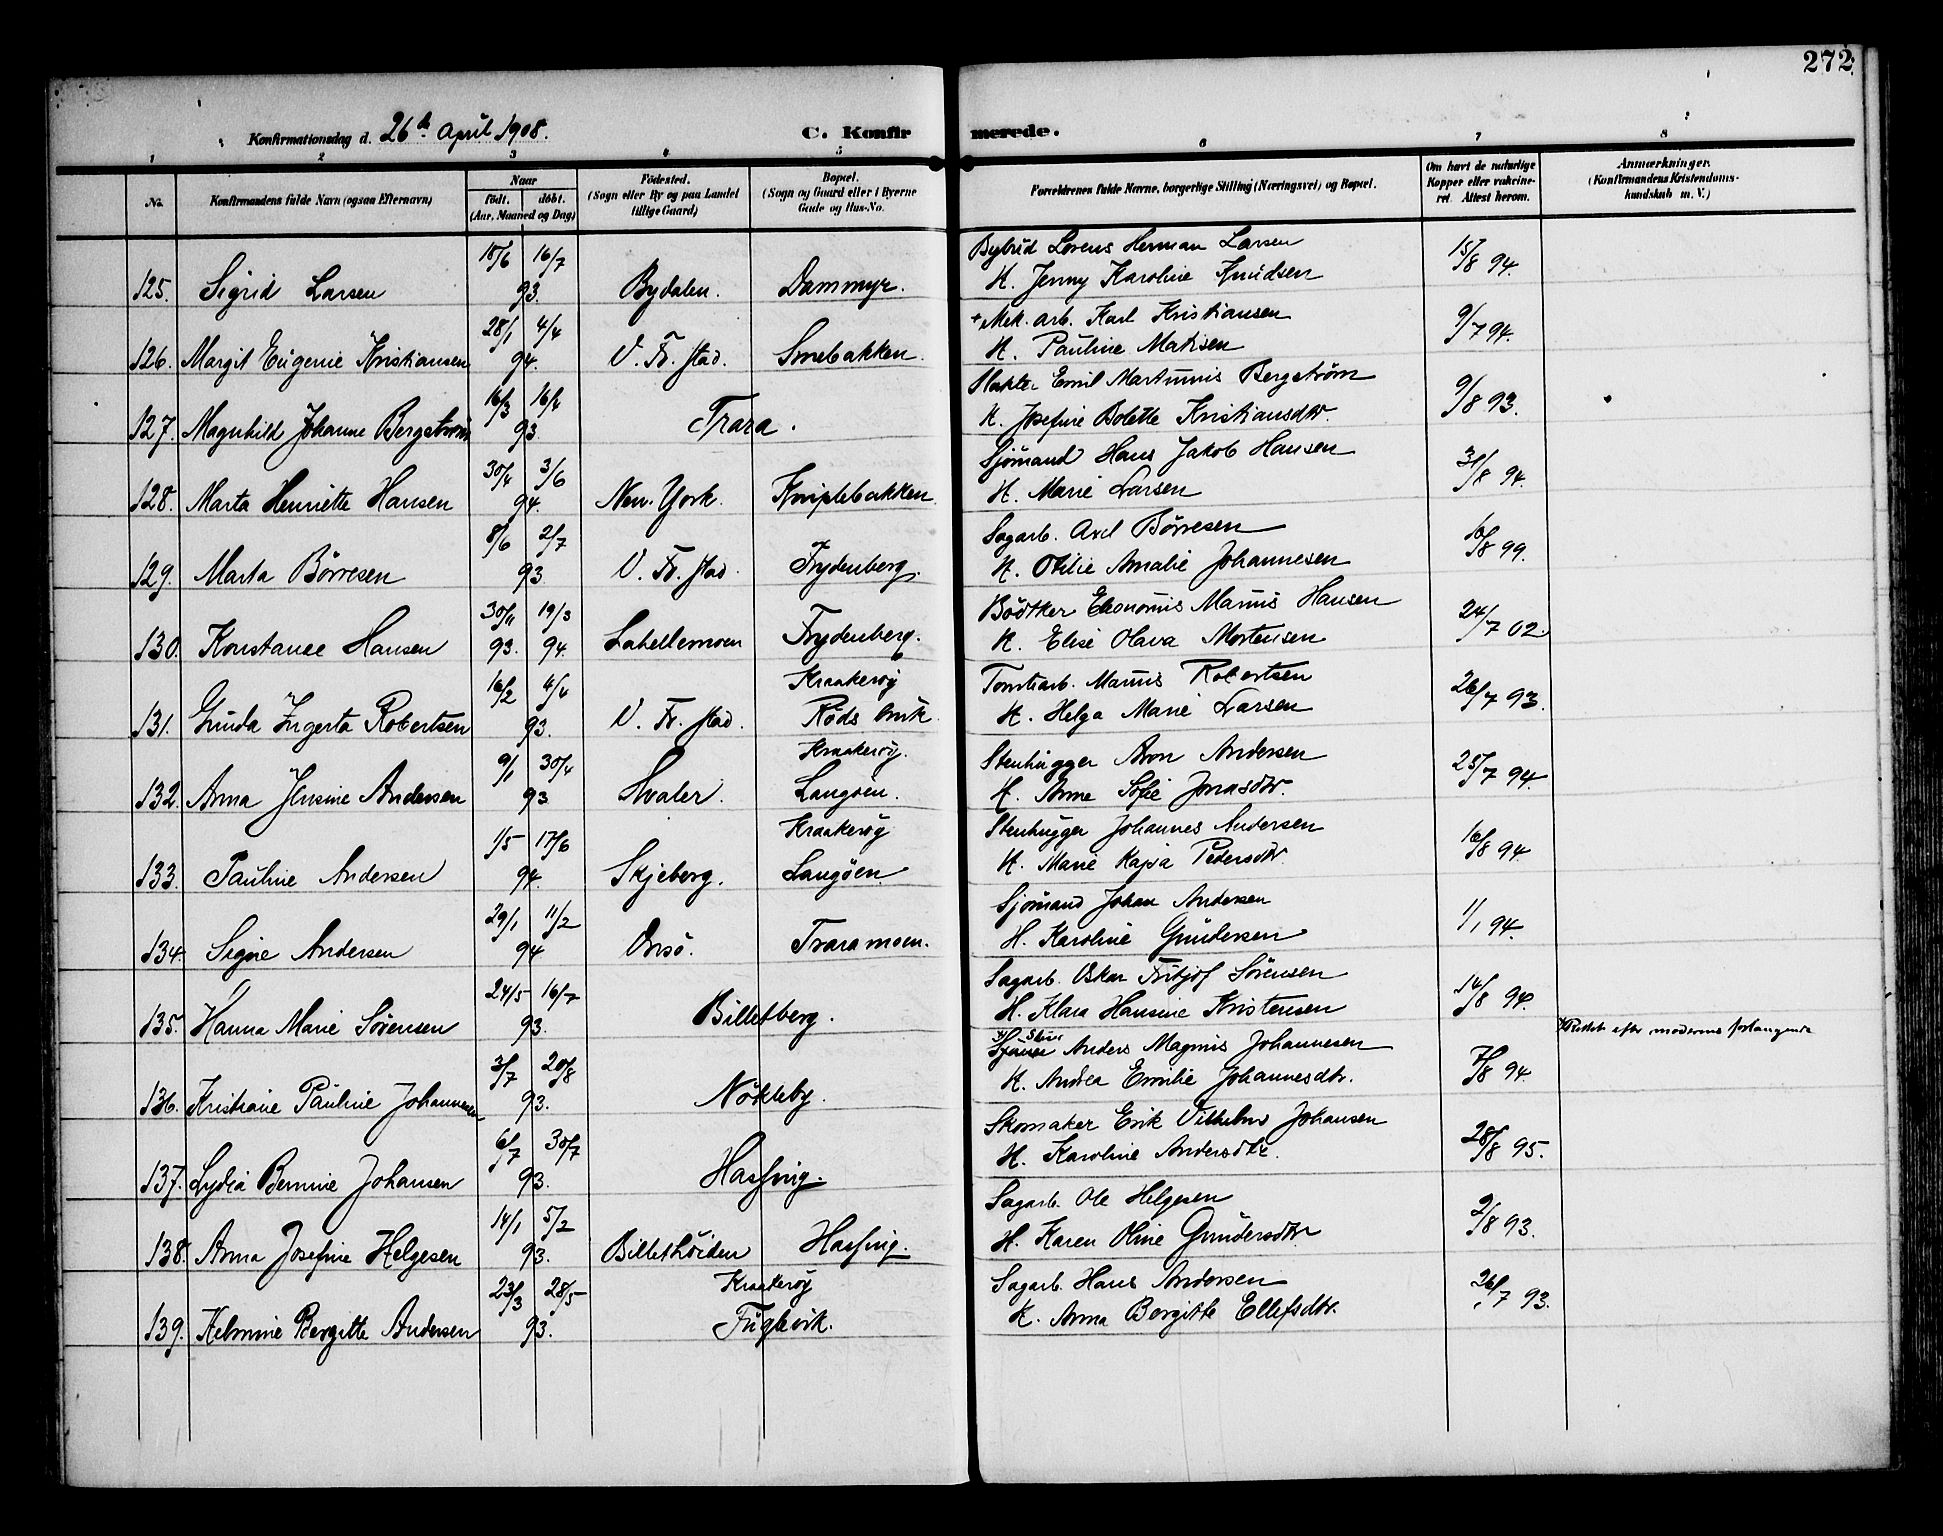 272
Konfirmationsdag d. 26de April 1908.
C. Konfirmerede.
1 2 3 4 5 6 7 8
No. Konfirmandens fulde Navn (ogsaa Efternavn) Naar født. døbt. (Aar, Maaned og Dag) Fødested. (Sogn eller By og paa Landet tillige Gaard) Bopæl. (Sogn og Gaard eller i Byerne Gade og Hus-No. Forældrenes fulde Navne, borgerlige Stilling (Næringsvei) og Bopæl. Om havt de naturlige Kopper eller vakcineret. Attest herom. Anmærkninger. (Konfirmandens Kristendomskundskab m. V.)
18/6 16/7 Bybud Lorens Herman Larsen 15/8 94.
125. Sigrid Larsen 93. Bydalen. Dammyr. H. Jenny Karoline Knudsen
28/1 4/4 + Mek. arb. Karl Kristiansen 9/7 94.
126. Margit Eugenie Kristiansen 94. V. Fr. stad. Smebakken. H. Pauline Matisen
16/3 16/4 Emil Martinius Bergstrøm 9/8 93.
127. Magnhild Johanne Bergstrøm 93. Trara. H. Josefine Bolette Kristiansdtr.
30/4 3/6 Sjømand Hans Jakob Hansen 31/8 94.
128. Marta Henriette Hansen 94. New-York. Kniplebakken. H. Marie Larsen
8/6 2/7 Sagarb. Axel Børresen 16/8 99.
129. Marta Børresen 93 V. Fr. stad. Frydenberg. H. Otilie Amalie Johannesen
30/11 19/3 Bødtker Ekonomis Marius Hansen 24/7 02.
130. Konstance Hansen 93. 94. Lahellemoen Frydenberg. H. Elise Olava Mortensen
16/2 4/4 Kraakerøy Tomtarb. Marius Robertsen 26/7 93.
131. Gunda Ingerta Robertsen 93. V. Fr. stad. Røds bruk. H. Helga Marie Larsen
9/1 30/4 Kraakerøy. Stenhugger Aron Andersen 25/7 94.
132. Anna Jensine Andersen 93 Hvaler. Langøen. H. Anne Sofie Jonasdtr.
1/5 17/6 Kraakerøy Stenhugger Johannes Andersen 16/8 94
133. Pauline Andersen 94. Skjeberg. Langøen. H. Marie Kajsa Pedersdtr.
29/1 11/2 Sjømand Johan Andersen 1/1 94.
134. Signe Andersen 94 Onsø. Traramoen. H. Karoline Gundersen
24/5 16/7 Sagarb. Oskar Fritjof Sørensen 14/8 94.
135. Hanna Marie Sørensen 93. Billetberg. H. Klara Hansine Kristensen
3/7 20/8 Anders Magnus Johannesen 7/8 94. Rettet efter moderens forlangende
136. Kristiane Pauline Johannesen 93. Nøkleby. H. Andrea Emilie Johannesdtr.
6/7 30/7 Skomaker Erik Vilhelm Johansen 28/8 95.
137. Lydia Bernine Johansen 93. Hassing. H. Karoline Andersdtr.
14/1 5/2 Sagarb. Ole Helgesen 2/8 93.
138. Anna Josefine Helgesen 93. Billethøiden Hassing. H. Karen Oline Gundersdtr
23/3 28/5 Kraakerøy Sagarb. Hans Andersen 26/7 93.
139. Helmine Bergitte Andersen 93. Fuglevik. H. Anna Bergitte Ellefsdtr.